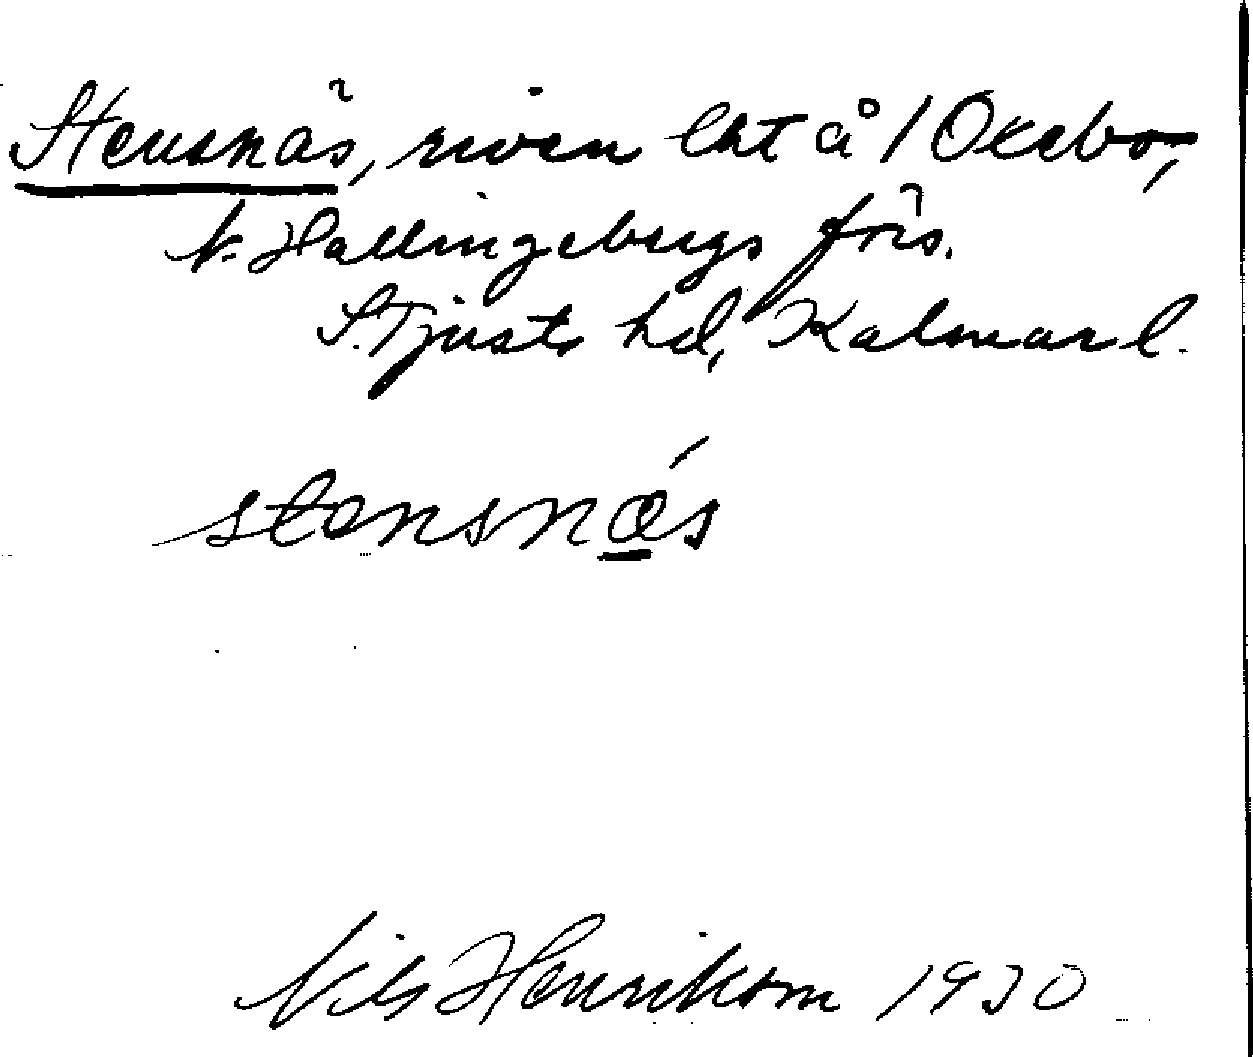 Stensnäs, riven lht å 1 Ocebo,
V. Hallingebergs förs.
S. Tjusts hd, Kalmar l.
stensnæ´s
Nils Henrikson 1930